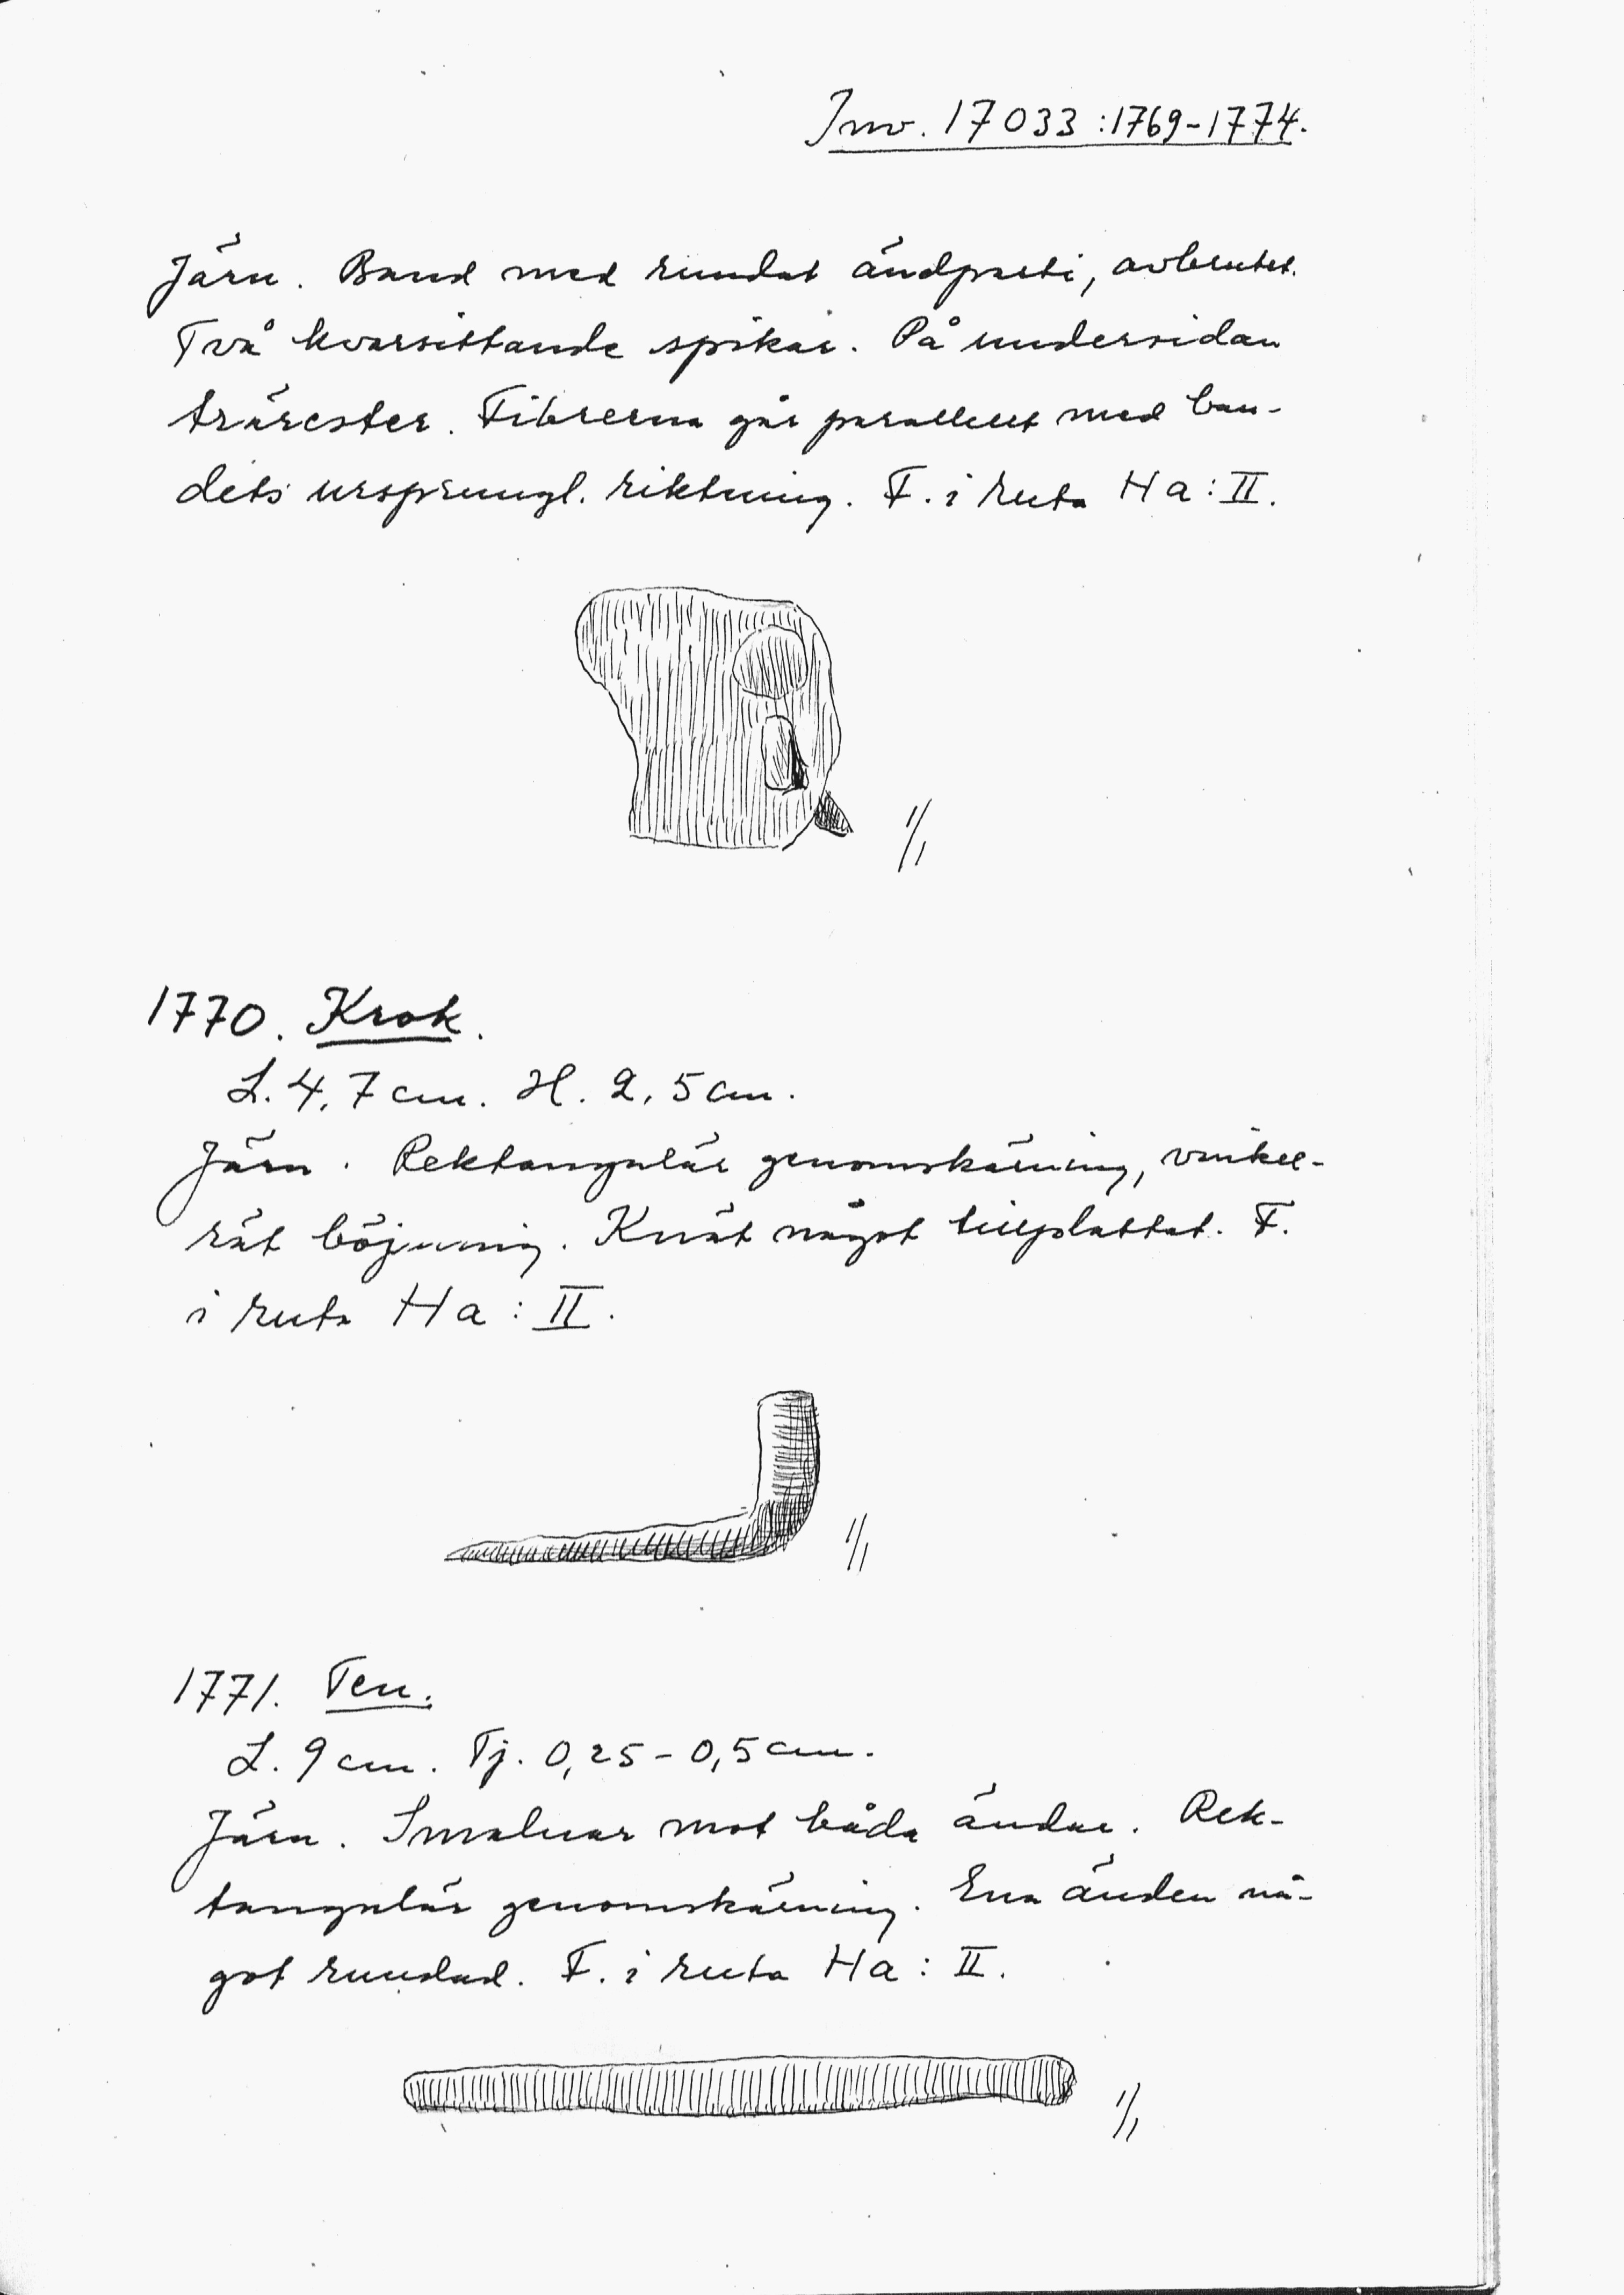 Inv. 17033:1769-1774.
Järn. Band med rundat ändparti, avbrutet.
Två kvarsittande spikar. På undersidan
trärester. Fibrerna går parallellt med ban-
dets ursprungl. riktning. F. i ruta Ha:II.
1/1
1770. Krok.
L. 4,7 cm. H. 2,5 cm.
Järn. Rektangulär genomskärning, vinkel-
rät böjning. Knät något tillplattat. F.
i ruta Ha:II.
1/1
1771. Ten.
L. 9 cm. Tj. 0,25-0,5 cm.
Järn. Smalnar mot båda ändar. Rek-
tangulär genomskärning. Ena änden nå-
got rundad. F. i ruta Ha:II.
1/1